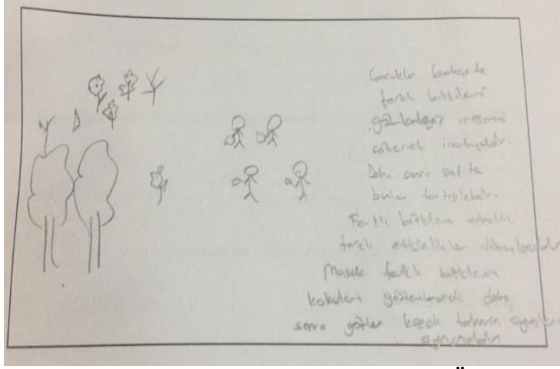 Çocuklar bahçede
farklı bitkileri
gözlemleyip resmini
çizerek inceleyebilir.
Daha sonra sınıfta
bunlar tartışılabilir.
Farklı bitkilere yönelik
farklı etkinlikler
Mesela farklı bitkilerin
kokuları gözlemlenerek daha
sonra gözler kapalı tahmin oyunları
oynanabilir